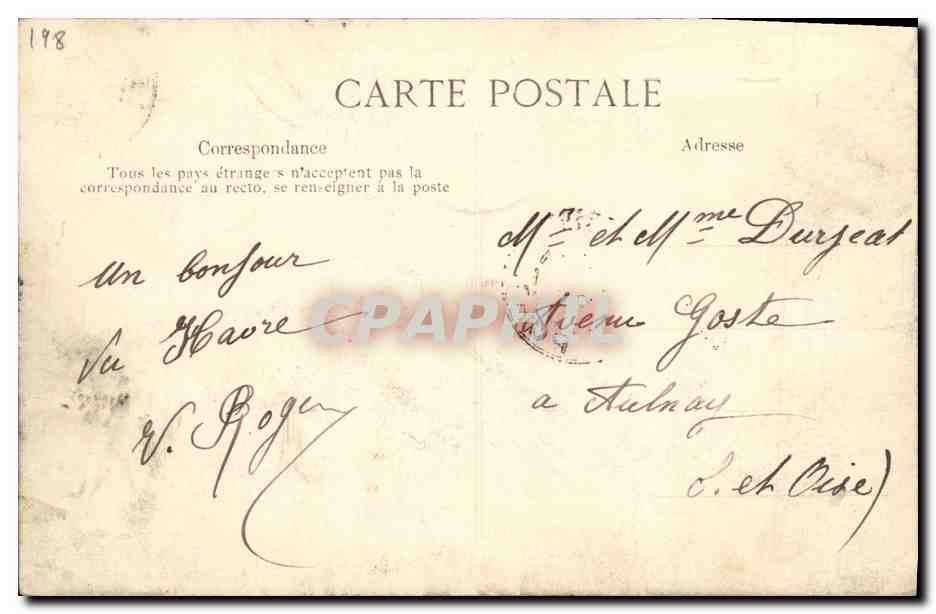 198
CARTE POSTALE
Correspondance
Tous les pays étrangers n'acceptent pas la
correspondance au recto, se renseigner à la poste
un bonjour
du Havre
V. Roger
Adresse
Mr et Mme Durjeat
Avenue Goste
a Aulnay
S. et Oise)
CPAPHIL